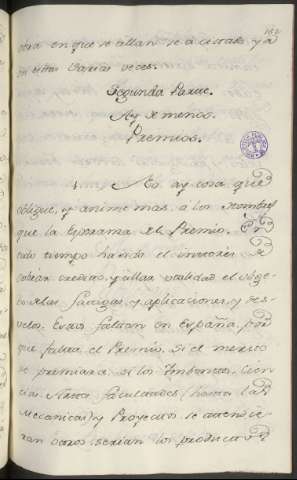 cosa en que se allan se a citado ya
en estas varias veces.
Segunda Parte.
Ay de menos.
Premios.
1 No ay cosa que
obligue, y anime mas a los Hombres
que la esperama del Premio. En
todo tiempo
credito, y allar utilidad el
de las fatigas, y aplicaciones, y des-
velos. Estos faltan en España, por
que falta el Premio. Si el merito
se premiara, si los Imbentos, Cien
cias, Artes, facultades (hasta las
Mecanicas) y Proyectos se atendie
ran otros serian los productos